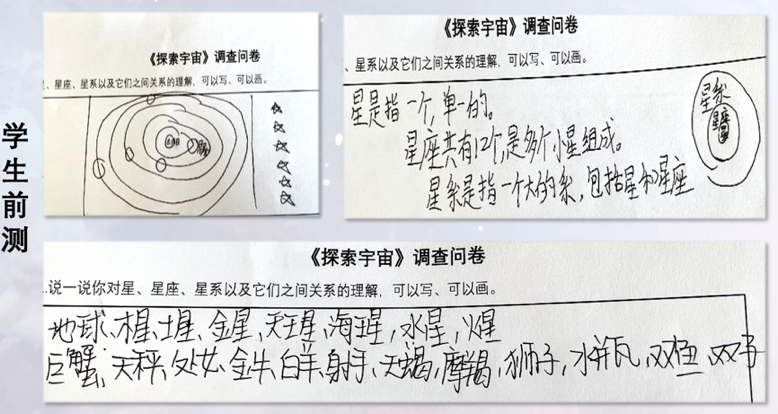 学生前测
《探索宇宙》调查问卷
、星座、星系以及它们之间关系的理解，可以写、可以画。
《探索宇宙》调查问卷
、星系以及它们之间关系的理解，可以写、可以画。
星是指一个，单一的。
星座共有12个，是多个小星组成。
星系是指一个大的系，包括星和星座
星系
星座
《探索宇宙》调查问卷
.说一说你对星、星座、星系以及它们之间关系的理解，可以写、可以画。
地球、木星、土星、金星、天王星、海王星、水星、火星
巨蟹、天秤、处女、金牛、白羊、射手、天蝎、摩羯、狮子、水瓶、双鱼、双子